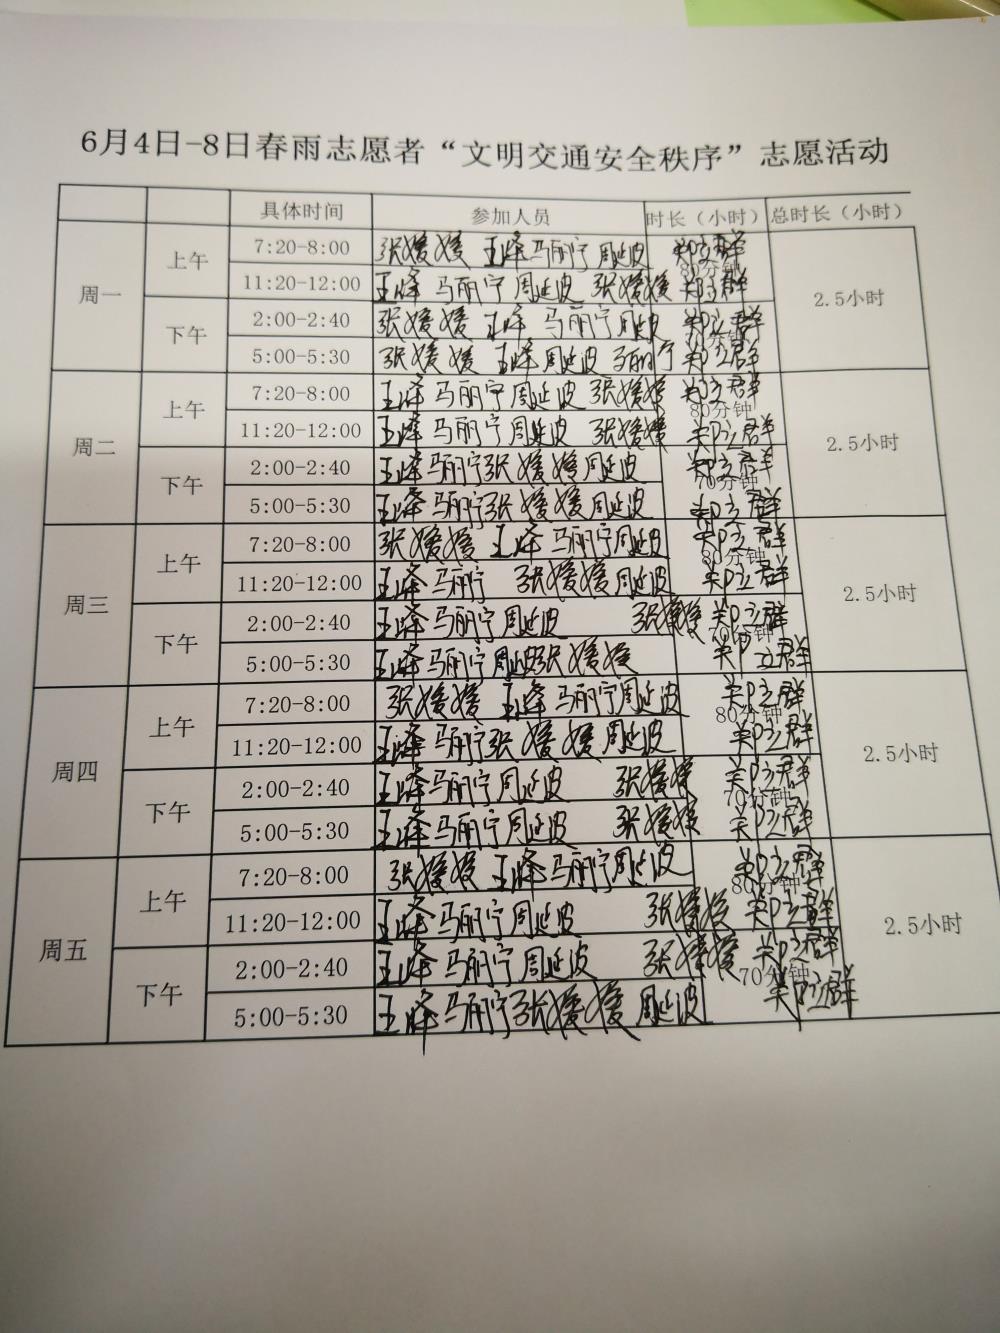 6月4日-8日春雨志愿者“文明交通安全秩序”志愿活动
具体时间 参加人员 时长（小时） 总时长（小时）
周一 上午 7:20-8:00 张媛媛 王峰 马丽宁 周延波 郑立群 80分钟 2.5小时
11:20-12:00 王峰 马丽宁 周延波 张媛媛 郑立群
下午 2:00-2:40 张媛媛 王峰 马丽宁 周延波 郑立群 70分钟
5:00-5:30 张媛媛 王峰 周延波 马丽宁 郑立群
周二 上午 7:20-8:00 王峰 马丽宁 周延波 张媛媛 郑立群 80分钟 2.5小时
11:20-12:00 王峰 马丽宁 周延波 张媛媛 郑立群
下午 2:00-2:40 王峰 马丽宁 张媛媛 周延波 郑立群 70分钟
5:00-5:30 王峰 马丽宁 张媛媛 周延波 郑立群
周三 上午 7:20-8:00 张媛媛 王峰 马丽宁 周延波 郑立群 80分钟 2.5小时
11:20-12:00 王峰 马丽宁 张媛媛 周延波 郑立群
下午 2:00-2:40 王峰 马丽宁 周延波 张媛媛 郑立群 70分钟
5:00-5:30 王峰 马丽宁 周延波 张媛媛 郑立群
周四 上午 7:20-8:00 张媛媛 王峰 马丽宁 周延波 郑立群 80分钟 2.5小时
11:20-12:00 王峰 马丽宁 张媛媛 周延波 郑立群
下午 2:00-2:40 王峰 马丽宁 周延波 张媛媛 郑立群 70分钟
5:00-5:30 王峰 马丽宁 周延波 张媛媛 郑立群
周五 上午 7:20-8:00 张媛媛 王峰 马丽宁 周延波 郑立群 80分钟 2.5小时
11:20-12:00 王峰 马丽宁 周延波 张媛媛 郑立群
下午 2:00-2:40 王峰 马丽宁 周延波 张媛媛 郑立群 70分钟
5:00-5:30 王峰 马丽宁 张媛媛 周延波 郑立群